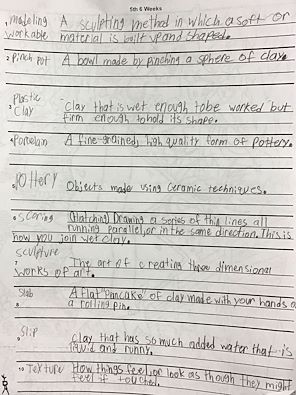 5th 6 Weeks
modeling A sculpting method in which a soft or
workable material is built up and shaped.
2 Pinch pot A bowl made by pinching a sphere of clay.
Plastic
3 Clay Clay that is wet enough to be worked but
firm enough to hold its shape.
4 Porcelain A fine-grained, high quality form of pottery.
5 Pottery Objects made using ceramic techniques.
6 Scoring (Hatching) Drawing a series of thin lines all
running parallel, or in the same direction. This is
how you join wet clay.
sculpture
7 The art of creating three dimensional
works of art.
Slab A flat "pancake" of clay made with your hands or
8 a rolling pin.
Slip
9 Clay that has so much added water that is
liquid and runny.
10 Texture How things feel, or look as though they might
feel if touched.